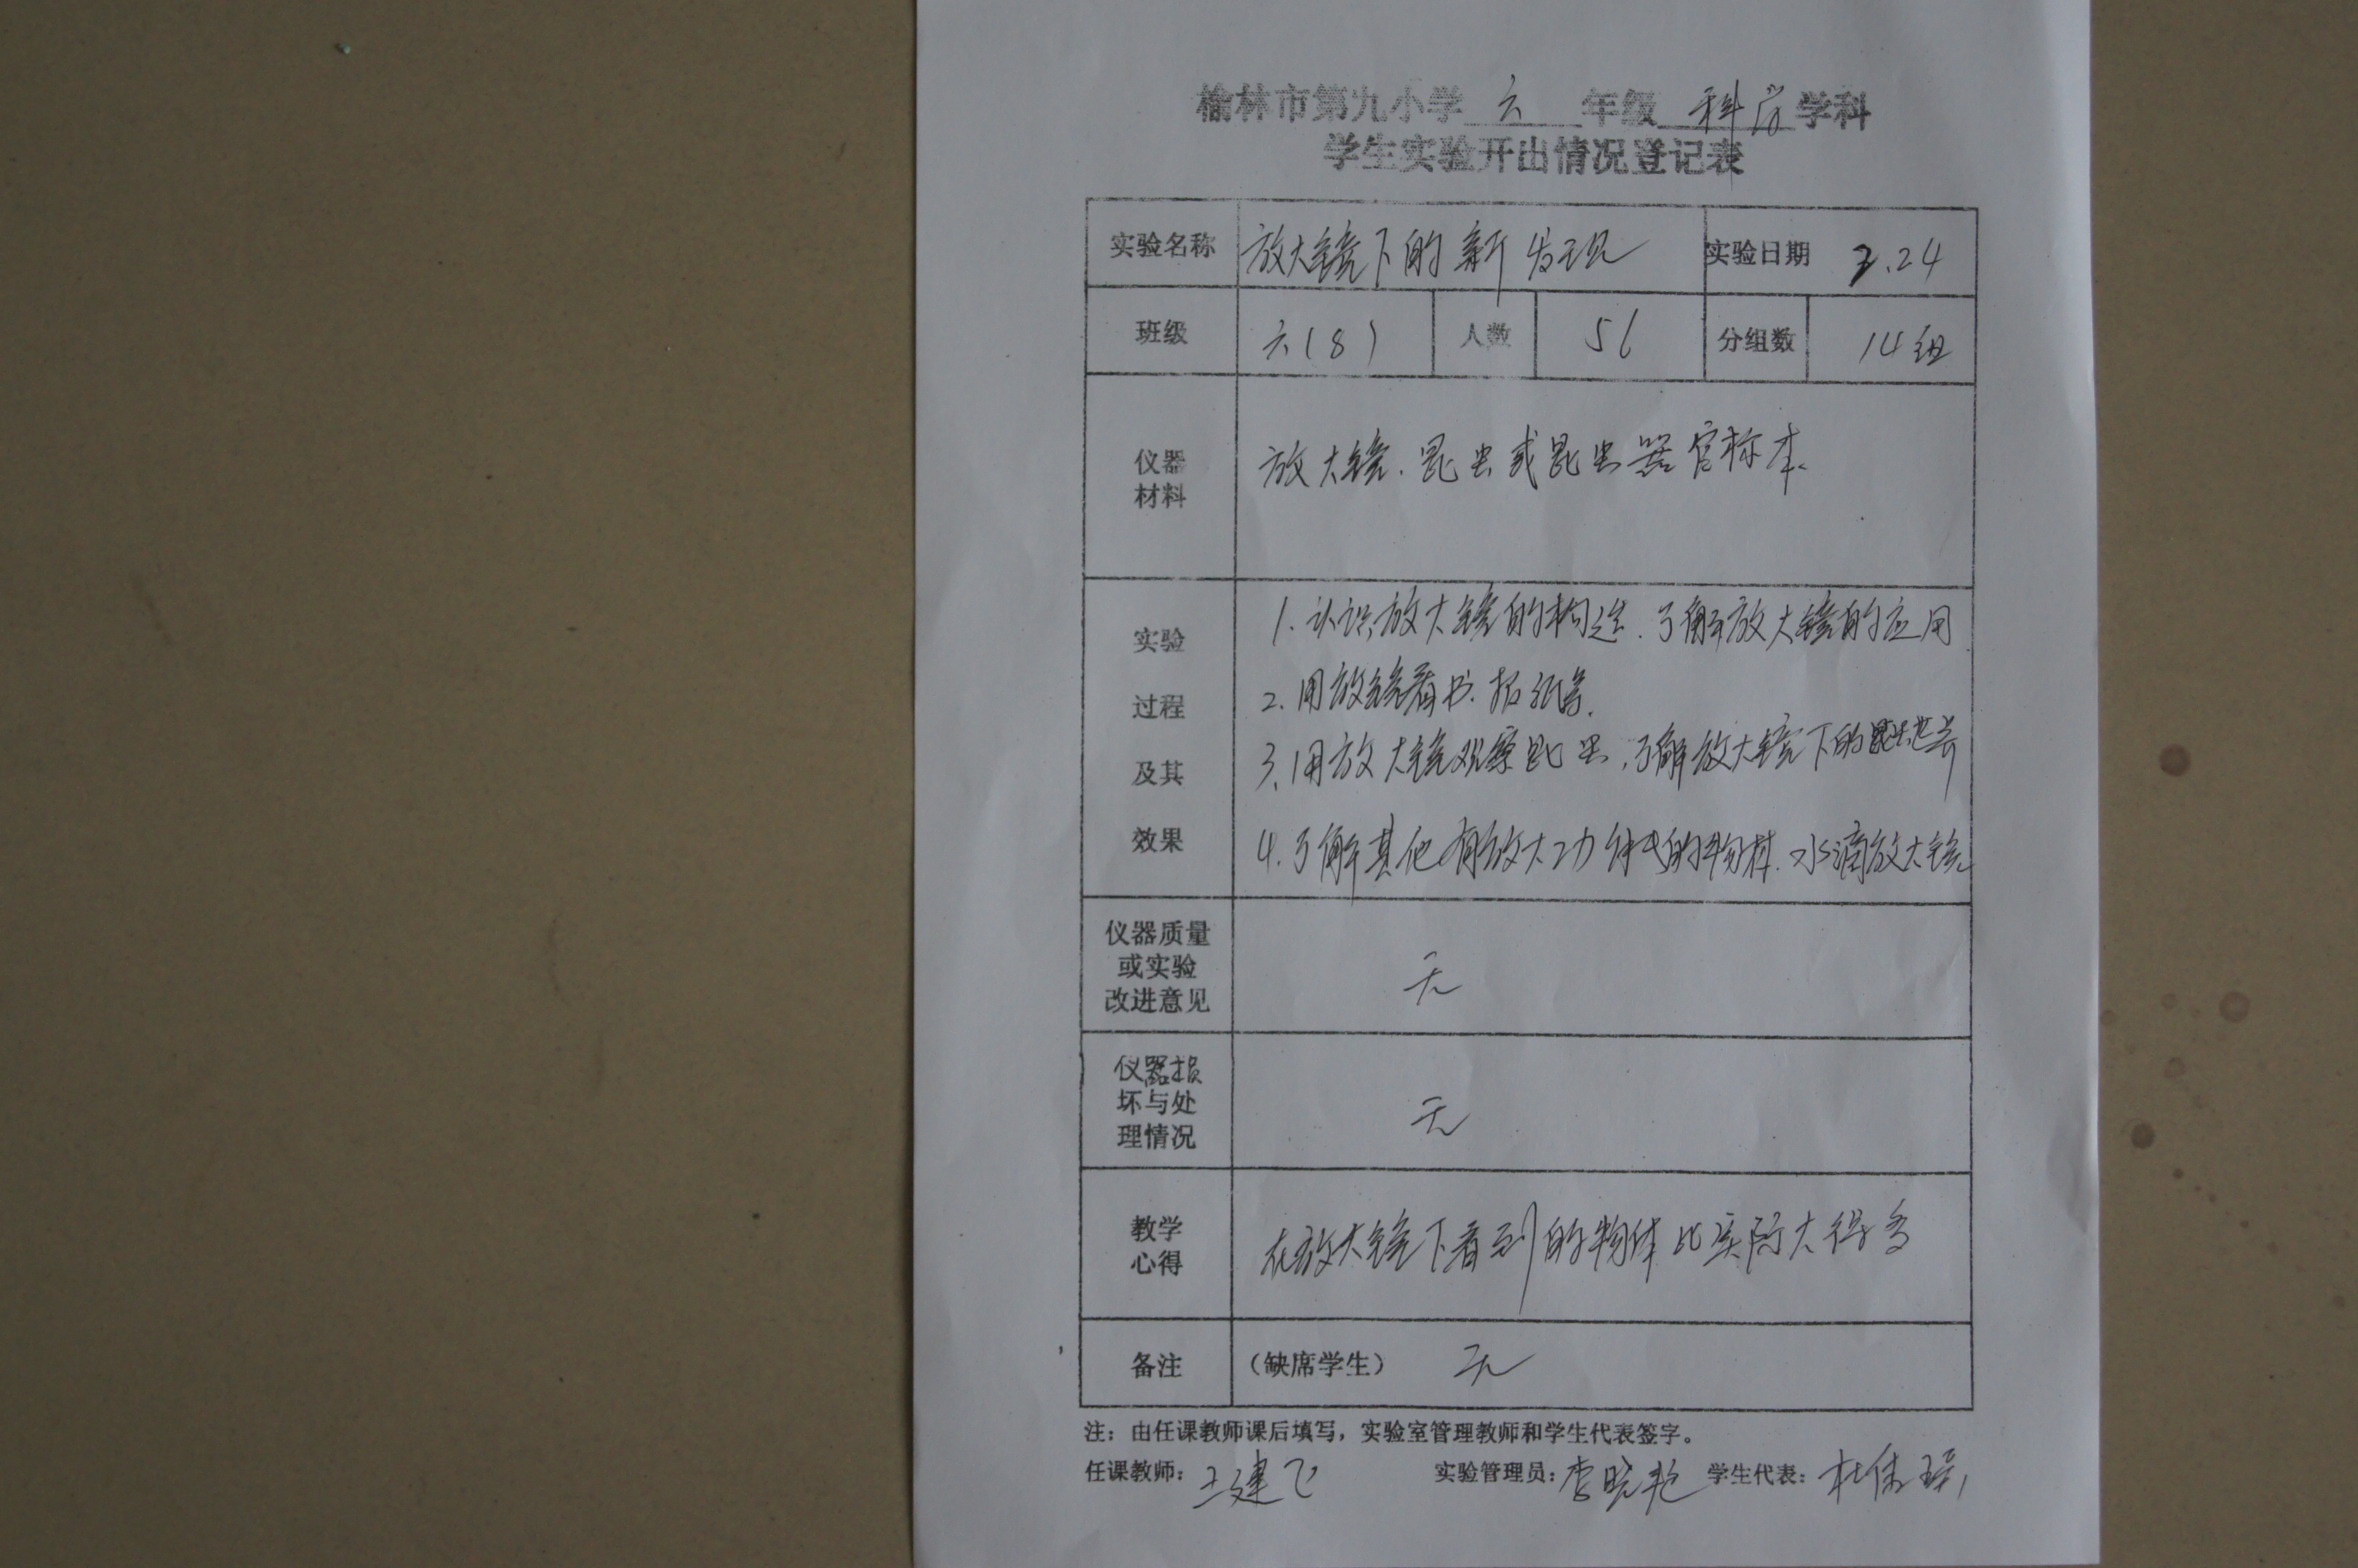 榆林市第九小学 六 年级 科学 学科
学生实验开出情况登记表
实验名称 放大镜下的新发现 实验日期 2.24
班级 六(8) 人数 56 分组数 14组
仪器
材料
放大镜、昆虫或昆虫器官标本。
实验
过程
及其
效果
1. 认识放大镜的构造、了解放大镜的应用
2. 用放镜看书、报纸等.
3. 用放大镜观察昆虫、了解放大镜下的昆虫世界
4. 了解其他有放大功 的物 . 水滴放大镜
仪器质量
或实验
改进意见
无
仪器损
坏与处
理情况
无
教学
心得
在放大镜下看到的物体比实际大得多
备注 (缺席学生) 无
注：由任课教师课后填写，实验室管理教师和学生代表签字。
任课教师：王建飞 实验管理员：李晓艳 学生代表：杜佳